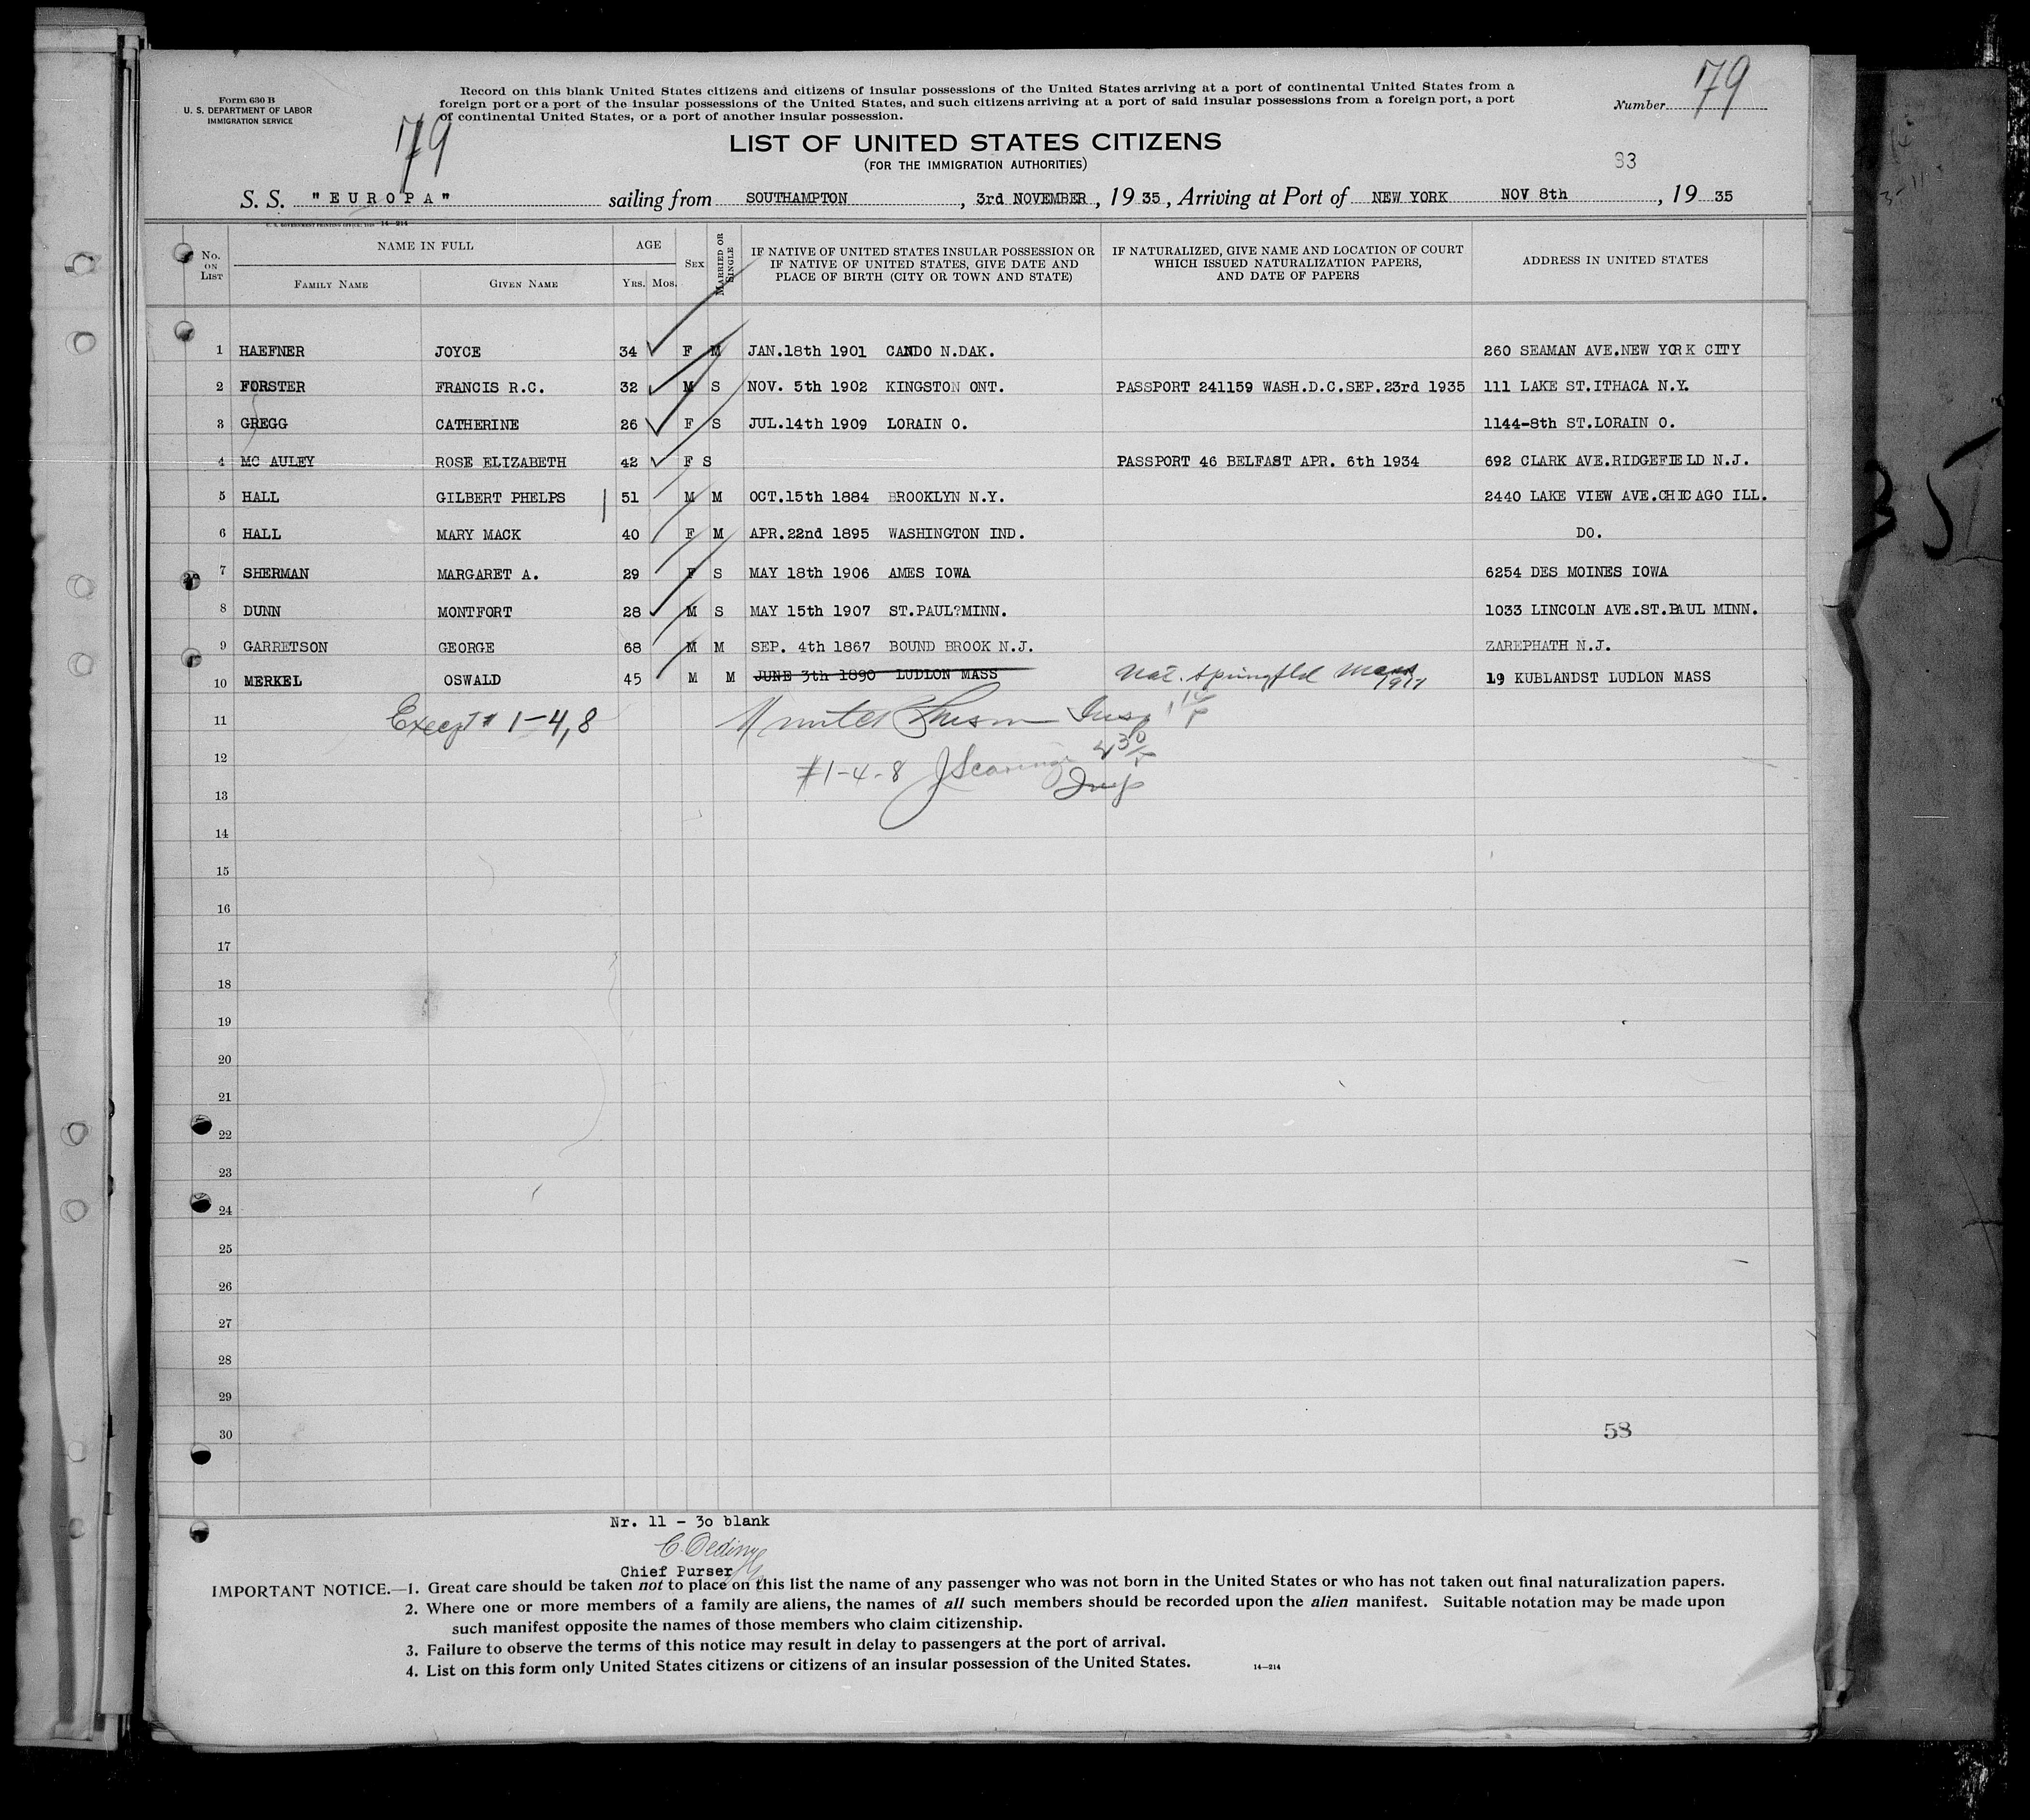 Form 630 B
U. S. DEPARTMENT OF LABOR
IMMIGRATION SERVICE
Record on this blank United States citizens and citizens of insular possessions of the United States arriving at a port of continental United States from a
foreign port or a port of the insular possessions of the United States, and such citizens arriving at a port of said insular possessions from a foreign port, a port
of continental United States, or a port of another insular possession.
Number 79
79
LIST OF UNITED STATES CITIZENS
(FOR THE IMMIGRATION AUTHORITIES)
33
S. S. "EUROPA" sailing from SOUTHAMPTON, 3rd NOVEMBER, 19 35, Arriving at Port of NEW YORK NOV 8th, 19 35
14-214
No. ON LIST NAME IN FULL AGE SEX MARRIED OR SINGLE IF NATIVE OF UNITED STATES INSULAR POSSESSION OR IF NATIVE OF UNITED STATES, GIVE DATE AND PLACE OF BIRTH (CITY OR TOWN AND STATE) IF NATURALIZED, GIVE NAME AND LOCATION OF COURT WHICH ISSUED NATURALIZATION PAPERS, AND DATE OF PAPERS ADDRESS IN UNITED STATES
FAMILY NAME GIVEN NAME YRS. MOS.
1 HAEFNER JOYCE 34 F M JAN.18th 1901 CANDO N.DAK. 260 SEAMAN AVE.NEW YORK CITY
2 FORSTER FRANCIS R.C. 32 M S NOV. 5th 1902 KINGSTON ONT. PASSPORT 241159 WASH.D.C.SEP.23rd 1935 111 LAKE ST.ITHACA N.Y.
3 GREGG CATHERINE 26 F S JUL.14th 1909 LORAIN O. 1144-8th ST.LORAIN O.
4 MC AULEY ROSE ELIZABETH 42 F S PASSPORT 46 BELFAST APR. 6th 1934 692 CLARK AVE.RIDGEFIELD N.J.
5 HALL GILBERT PHELPS 51 M M OCT.15th 1884 BROOKLYN N.Y. 2440 LAKE VIEW AVE.CHICAGO ILL.
6 HALL MARY MACK 40 F M APR.22nd 1895 WASHINGTON IND. DO.
7 SHERMAN MARGARET A. 29 F S MAY 18th 1906 AMES IOWA 6254 DES MOINES IOWA
8 DUNN MONTFORT 28 M S MAY 15th 1907 ST.PAUL?MINN. 1033 LINCOLN AVE.ST.PAUL MINN.
9 GARRETSON GEORGE 68 M M SEP. 4th 1867 BOUND BROOK N.J. ZAREPHATH N.J.
10 MERKEL OSWALD 45 M M JUNE 3th 1890 LUDLON MASS Nat. Springfld Mass 19 KUBLANDST LUDLON MASS
11 Except # 1-4, 8 Insp
12
#1-4-8
13 Insp
14
15
16
17
18
19
20
21
22
23
24
25
26
27
28
29
30
58
Nr. 11 - 30 blank
Chief Purser
IMPORTANT NOTICE.—1. Great care should be taken not to place on this list the name of any passenger who was not born in the United States or who has not taken out final naturalization papers.
2. Where one or more members of a family are aliens, the names of all such members should be recorded upon the alien manifest. Suitable notation may be made upon
such manifest opposite the names of those members who claim citizenship.
3. Failure to observe the terms of this notice may result in delay to passengers at the port of arrival.
4. List on this form only United States citizens or citizens of an insular possession of the United States.
14-214